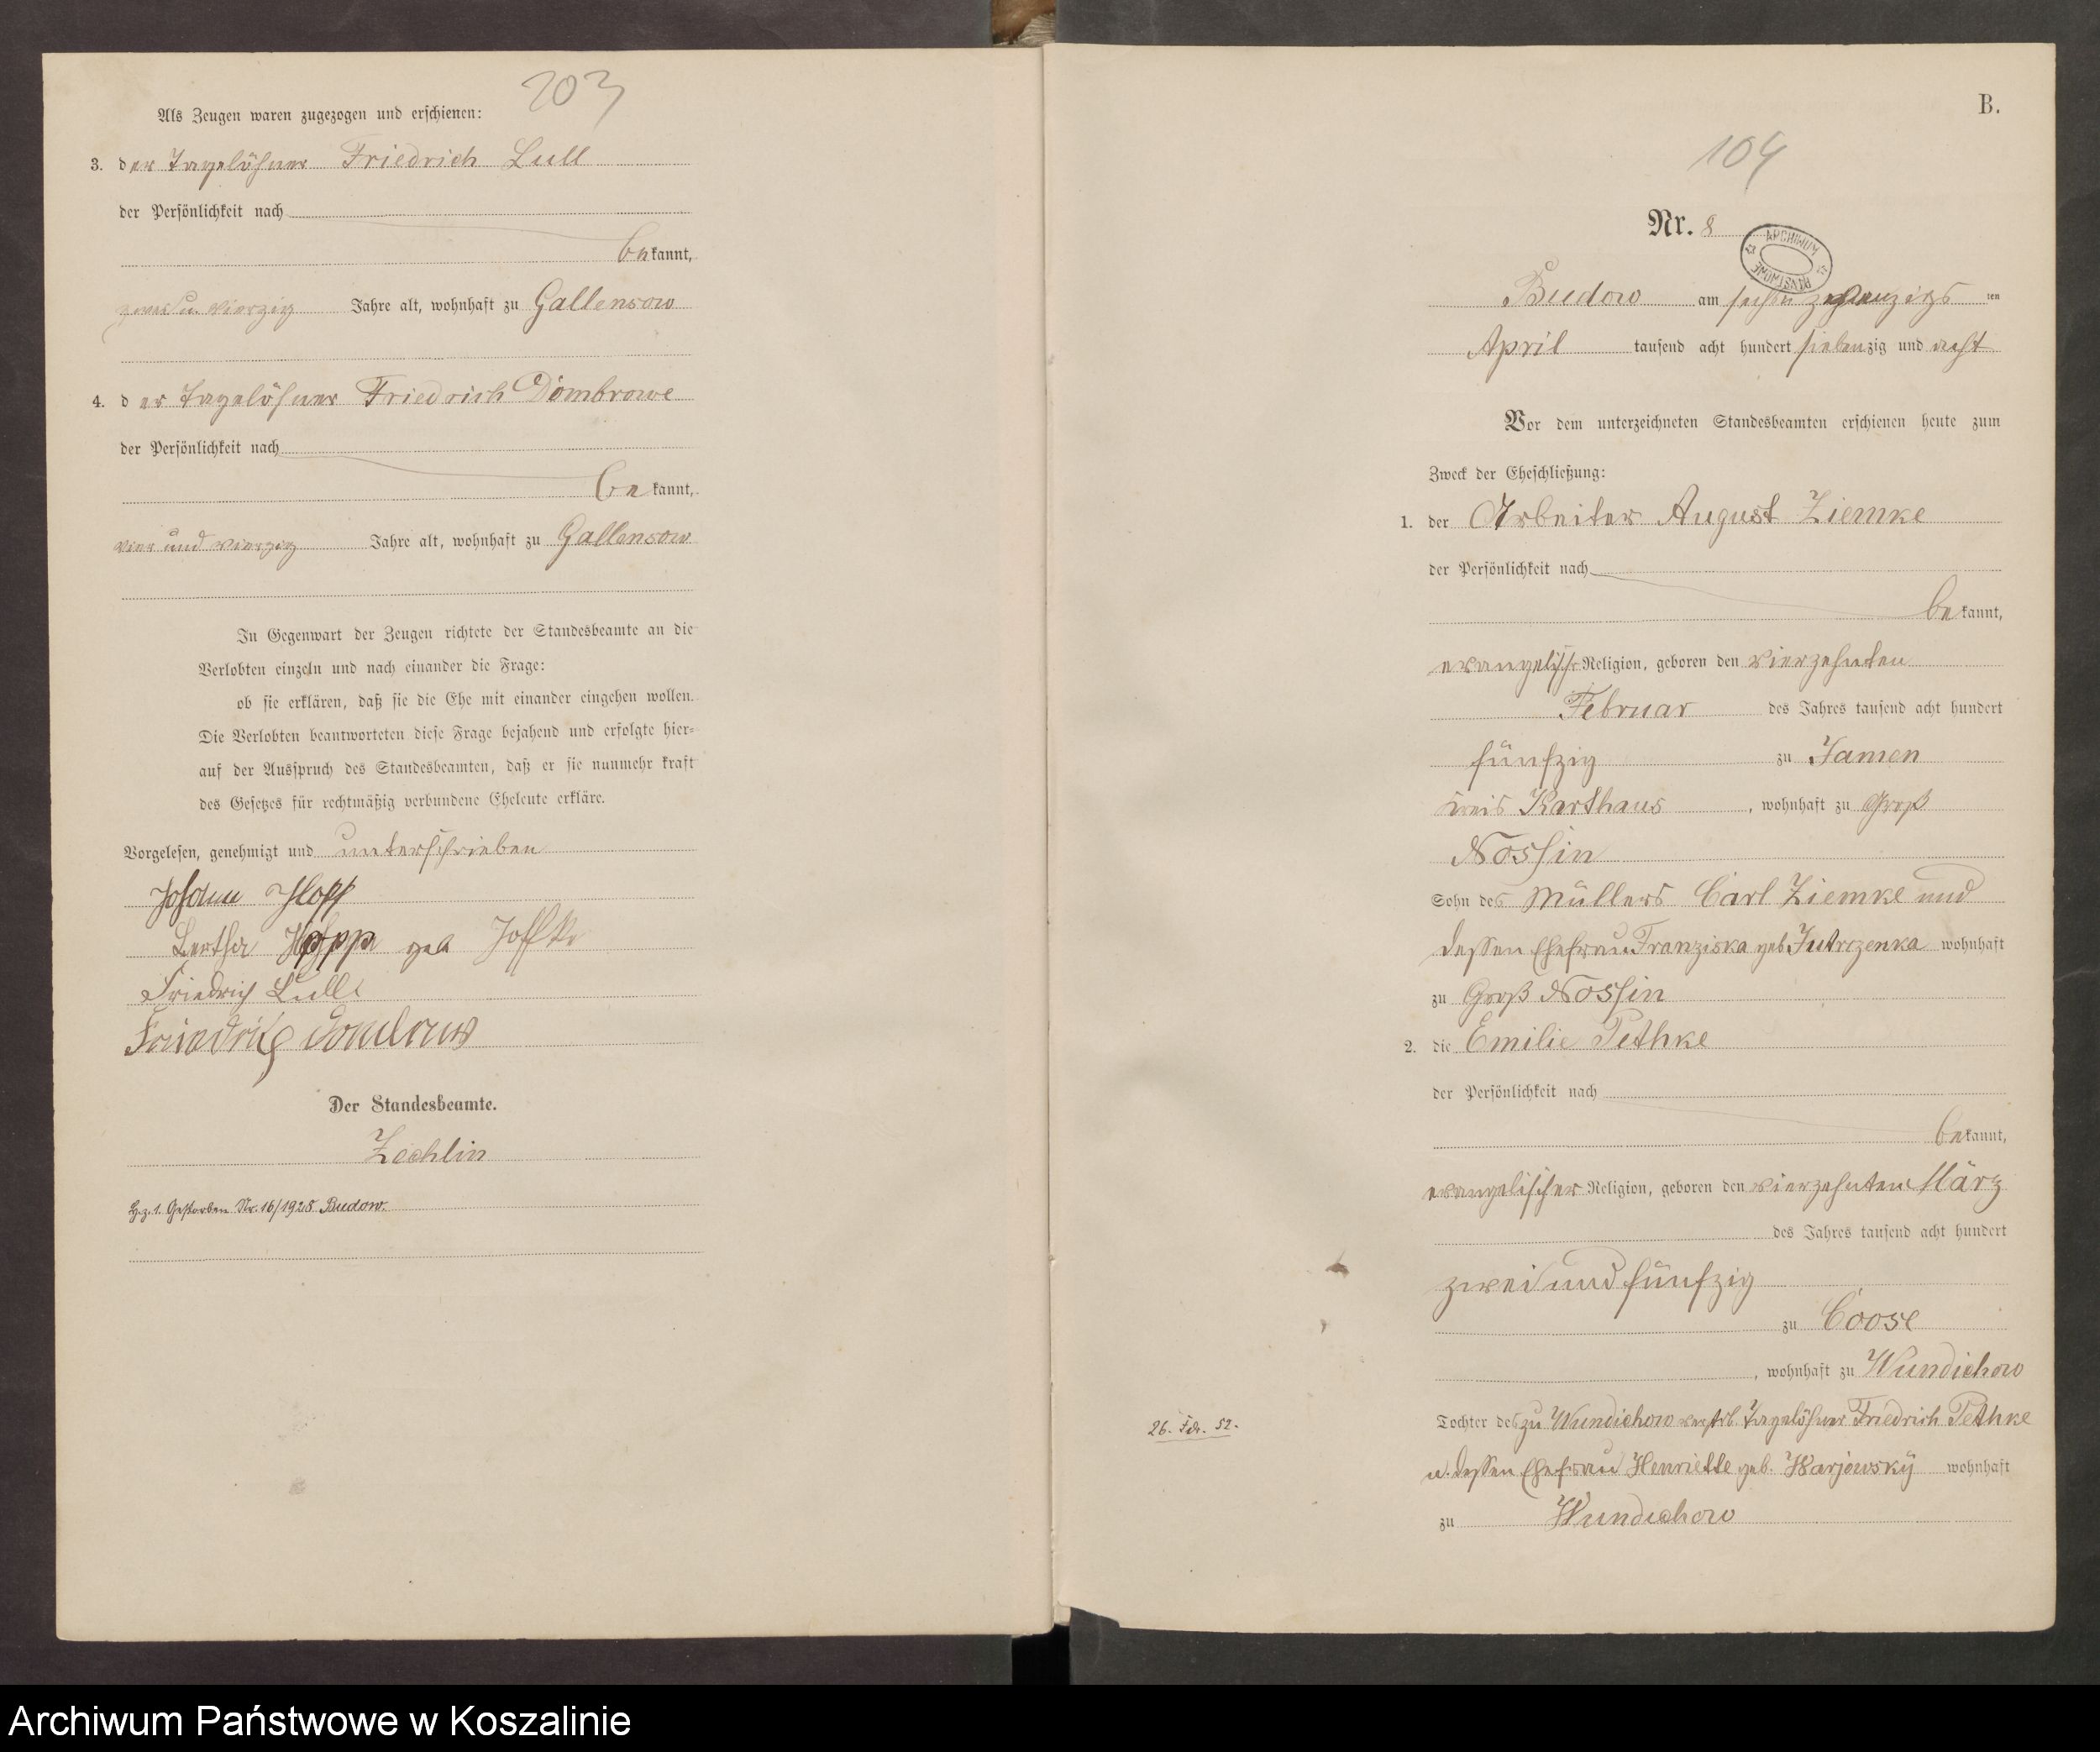 103
Als Zeugen waren zugezogen und erschienen:
3. der Tagelöhner Friedrich Lull
der Persönlichkeit nach
bekannt,
zwei u. vierzig Jahre alt, wohnhaft zu Gallensow
4. der Tagelöhner Friedrich Dombrowe
der Persönlichkeit nach
bekannt,
vier und vierzig Jahre alt, wohnhaft zu Gallensow
In Gegenwart der Zeugen richtete der Standesbeamte an die
Verlobten einzeln und nach einander die Frage:
ob sie erklären, daß sie die Ehe mit einander eingehen wollen.
Die Verlobten beantworteten diese Frage bejahend und erfolgte hier-
auf der Ausspruch des Standesbeamten, daß er sie nunmehr kraft
des Gesetzes für rechtmäßig verbundene Eheleute erkläre.
Vorgelesen, genehmigt und unterschrieben
Johann
geb
Friedrich Lull
Friedrich
Der Standesbeamte.
Zechlin
Hz. 1. Gestorben Nr. 16/1928 Budow.
B.
104
Nr. 8
ARCHIWUM PAŃSTWOWE
Budow am sechs u zwanzigsten
April tausend acht hundert siebenzig und acht
Vor dem unterzeichneten Standesbeamten erschienen heute zum
Zweck der Eheschließung:
1. der Arbeiter August Ziemke
der Persönlichkeit nach
bekannt,
evangelischer Religion, geboren den vierzehnten
Februar des Jahres tausend acht hundert
fünfzig zu Jamen
Kreis Karthaus, wohnhaft zu Groß
Nossin
Sohn des Müllers Carl Ziemke und
dessen Ehefrau Franziska geb. Jutrczenka wohnhaft
zu Groß Nossin
2. die Emilie Pethke
der Persönlichkeit nach
bekannt,
evangelischer Religion, geboren den vierzehnten März
des Jahres tausend acht hundert
zwei und fünfzig
zu Coose
, wohnhaft zu Wundichow
26. Fdr. 52.
Tochter des zu Wundichow verstrb. Tagelöhner Friedrich Pethke
u. dessen Ehefrau Henriette geb. Warjowsky wohnhaft
zu Wundichow
Archiwum Państwowe w Koszalinie